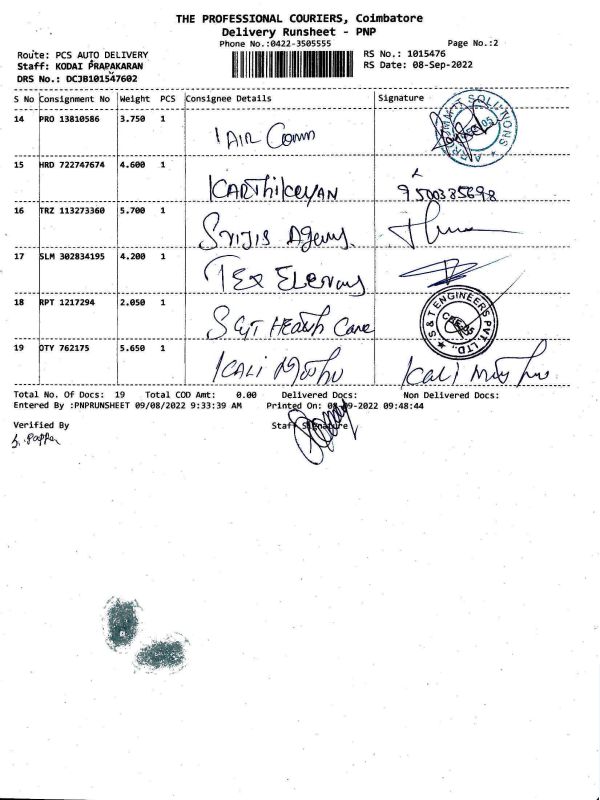 THE PROFESSIONAL COURIERS, Coimbatore
Delivery Runsheet - PNP
Phone No.:0422-3505555
Page No.:2
Route: PCS AUTO DELIVERY
RS No.: 1015476
Staff: KODAI PRAPAKARAN
RS Date: 08-Sep-2022
DRS No.: DCJB101547602
S No Consignment No Weight PCS Consignee Details Signature
14 PRO 13810586 3.750 1 AIR Comm
SOLUTIONS
15 HRD 722747674 4.600 1 KARTHIKEYAN 9500385698
16 TRZ 113273360 5.700 1 Srijis Agency
17 SLM 302834195 4.200 1 TEX
18 RPT 1217294 2.050 1 Health Care
S & T ENGINEERS PVT. LTD.
19 OTY 762175 5.650 1 KALI Muthu Kali Muthu
Total No. Of Docs: 19 Total COD Amt: 0.00 Delivered Docs: Non Delivered Docs:
Entered By :PNPRUNSHEET 09/08/2022 9:33:39 AM Printed On: 08-09-2022 09:48:44
Verified By Staff Signature